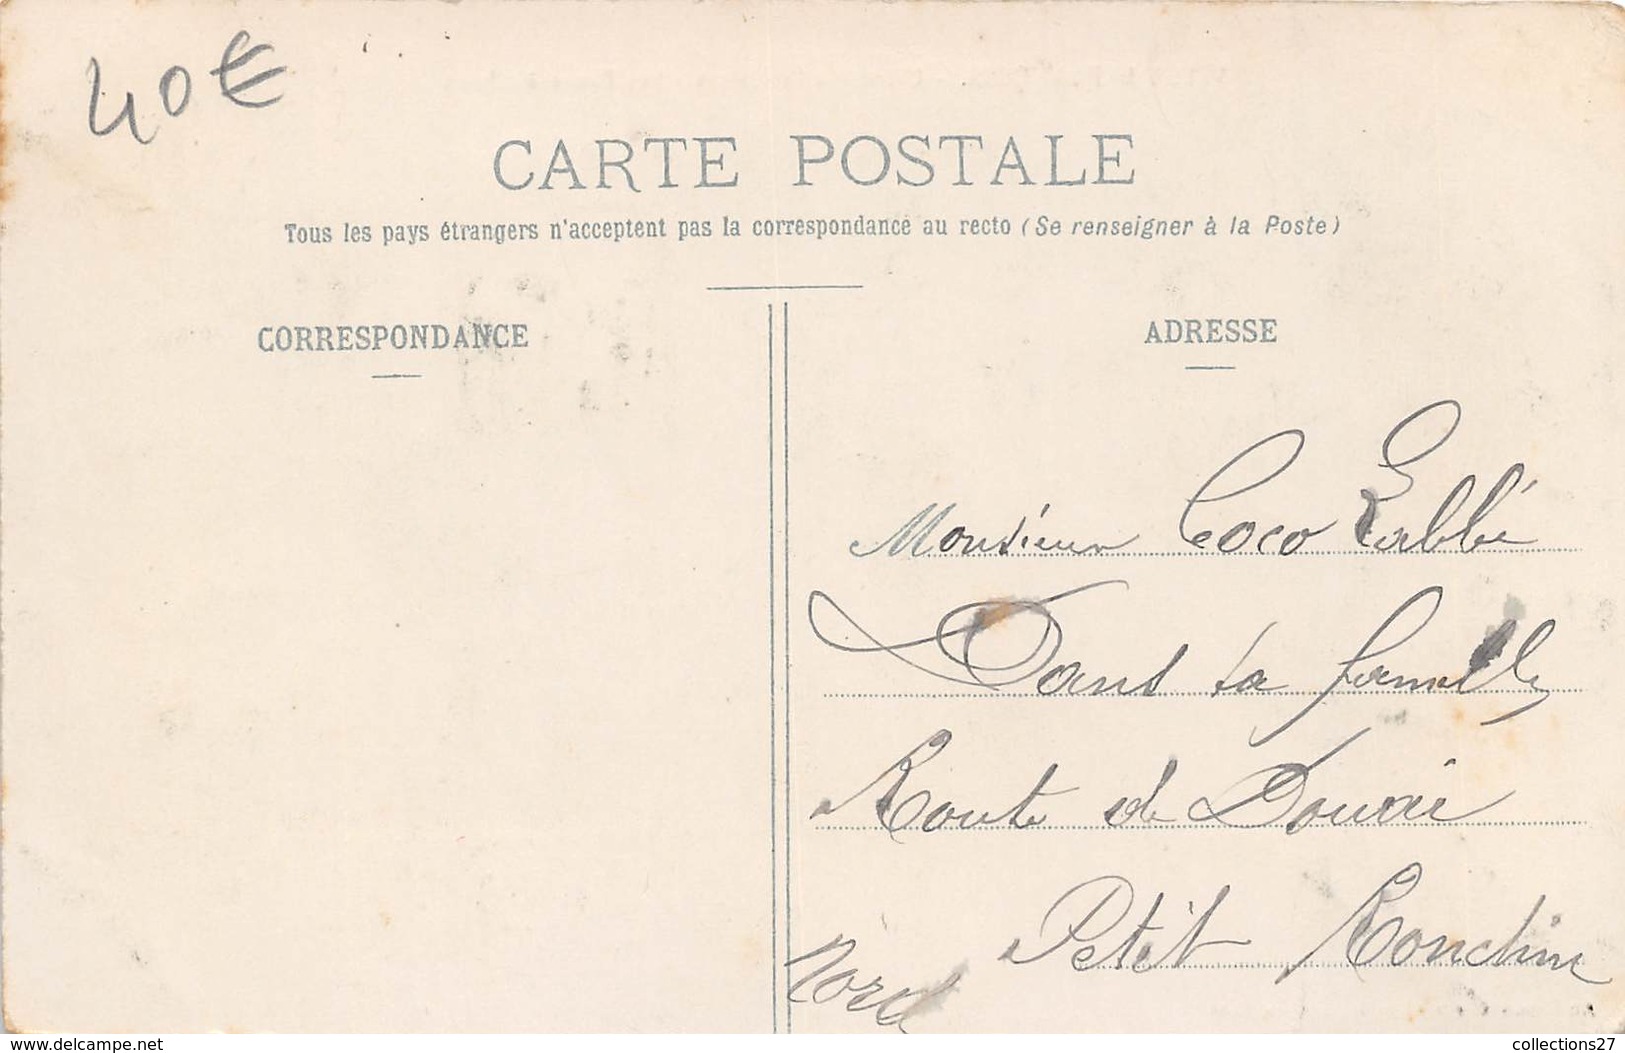 40€
CARTE POSTALE
Tous les pays étrangers n'acceptent pas la correspondance au recto (Se renseigner à la Poste)
CORRESPONDANCE
ADRESSE
Monsieur Coco Labbé
Dans sa famille
Route de Douai
Petit Ronchin
Nord
www.delcampe.net
collections27